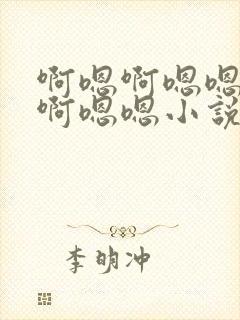 啊嗯啊嗯嗯
啊嗯嗯小説
李明冲